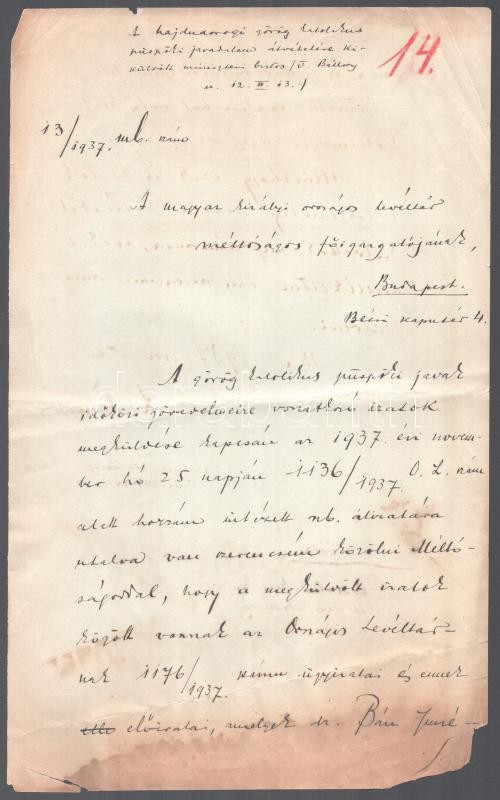 A hajdudorogi görög katolikus
püspöki javadalom átvételére ki-
küldött miniszteri biztos
u. 12. II. 63.
14.
13/1937. mb. szám
A magyar királyi országos levéltár
méltóságos főigazgatójának,
Budapest.
Bécsi kaputér 4.
A görög katolikus püspöki javak
időközi jövedelmeire vonatkozó iratok
megküldése kapcsán az 1937. évi novem-
ber hó 25. napján 1136/1937. O. L. szám
alatt hozzám intézett nb. átiratára
utalva van szerencsém közölni Méltó-
ságoddal, hogy a megküldött iratok
között vannak az Országos Levéltár-
nak 1176/1937. számu ügyiratai és ennek
előiratai, melyek dr. Bán Imré-
darabanth